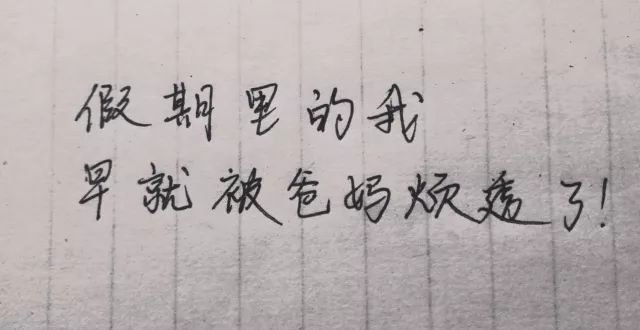 假期里的我
早就被爸妈烦透了!